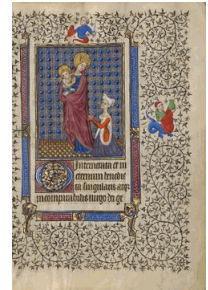 O Intemerata et in
eternum benedic
ta singularis atq
incomparabilis virgo dei ge